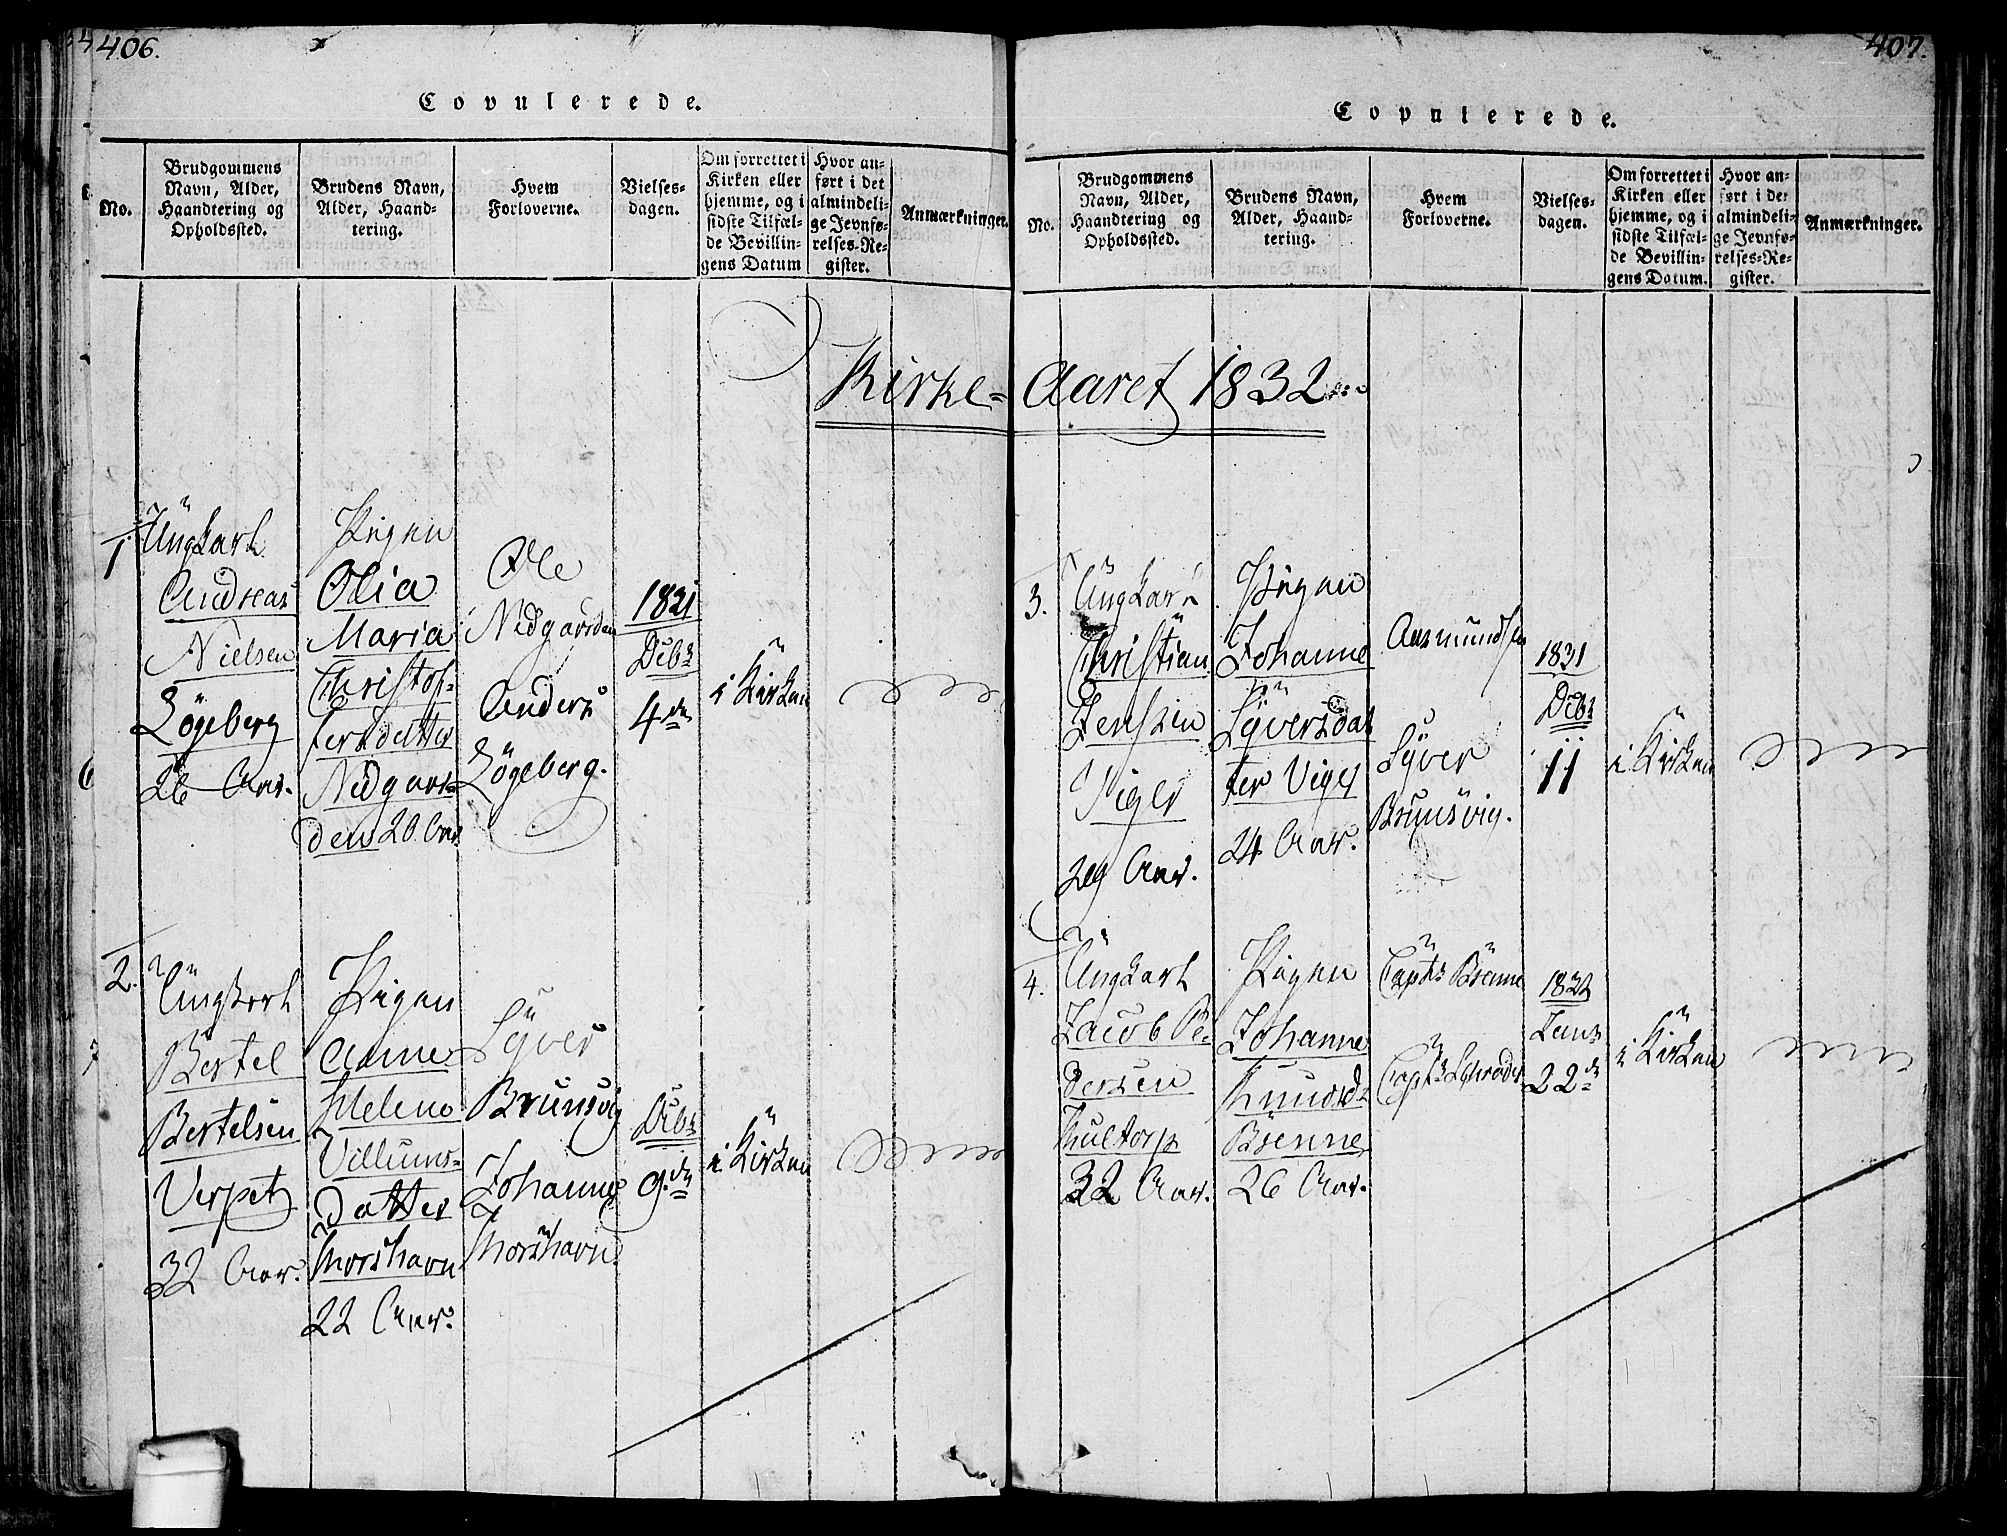 406.
Copulerede.
No.
Brudgommens
Navn, Alder,
Haandtering og
Opholdssted.
Brudens Navn,
Alder, Haand-
tering.
Hvem
Forloverne.
Vielses-
dagen.
Om forrettet i
Kirken eller
hjemme, og i
sidste Tilfæl-
de Bevillin-
gens Datum
Hvor an-
ført i det
almindeli-
ge Jevnfø-
relses-Re-
gister.
Anmærkninger.
Kirke-
1
Ungkarl
Andreas
Nielsen
Lögeberg
26 Aar.
Pigen
Olia
Maria
Christof-
fersdatter
Nidgars-
den 20 Aar
Ole
Nidgarsden
Anders
Lögeberg.
1831
Debr
4de
i Kirken
2.
Ungkarl
Bertel
Bertelsen
Verpet
32 Aar.
Pigen
Anne
Helene
Villums-
Datter
Thorshavn
22 Aar.
Syver
Brunsvig
Johannes
Thorshavn.
Debr
9de
i Kirken
407.
Copulerede.
No.
Brudgommens
Navn, Alder,
Haandtering og
Opholdssted.
Brudens Navn,
Alder, Haand-
tering.
Hvem
Forloverne.
Vielses-
dagen.
Om forrettet i
Kirken eller
hjemme, og i
sidste Tilfæl-
de Bevillin-
gens Datum.
Hvor an-
ført i det
almindeli-
ge Jevnfø-
relses-Re-
gister.
Anmærkninger.
Aaret 1832
3.
Ungkarl
Christian
Jensen
Viger
29 Aar.
Pigen
Johanne
Syversdat
ter Viger
24 Aar.
Syver
Brunsvig.
1831
Debr
11
i Kirken
4.
Ungkarl
Jacob Pe-
dersen
Hultorp
32 Aar.
Pigen
Johanne
Knudsd
Brenne
26 Aar.
Capt Brenne
Capt Schrøder
1832
Janr
22de
i Kirken